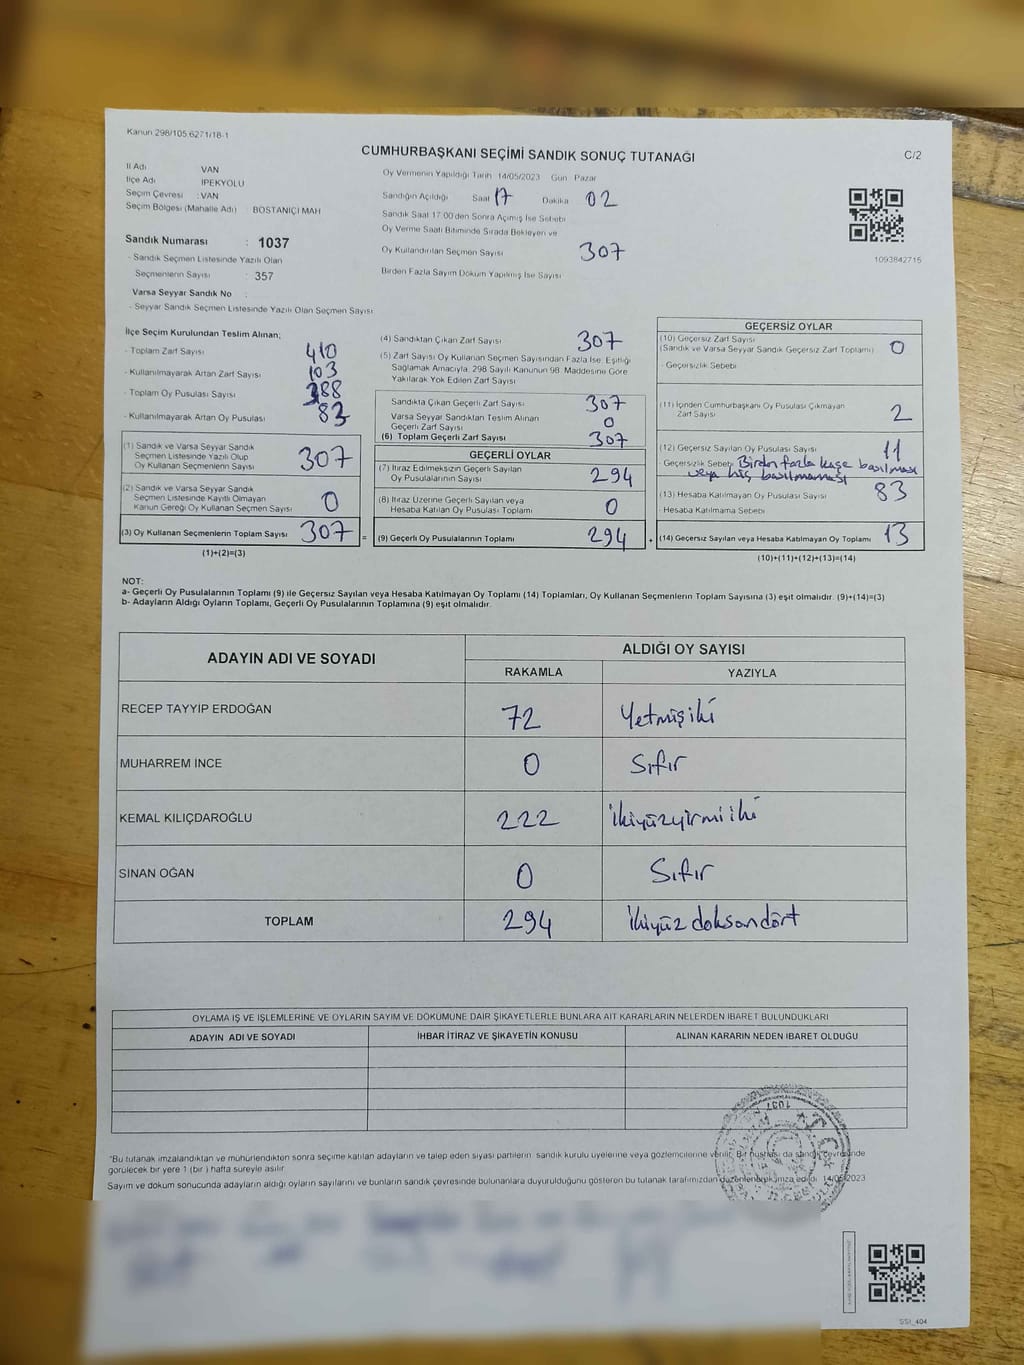 Kanun 298/105,6271/18-1
CUMHURBAŞKANI SEÇİMİ SANDIK SONUÇ TUTANAĞI
C/2
İl Adı VAN
İlçe Adı İPEKYOLU
Seçim Çevresi : VAN
Seçim Bölgesi (Mahalle Adı) : BOSTANİÇİ MAH
Sandık Numarası : 1037
- Sandık Seçmen Listesinde Yazılı Olan
Seçmenlerin Sayısı : 357
Varsa Seyyar Sandık No :
- Seyyar Sandık Seçmen Listesinde Yazılı Olan Seçmen Sayısı
Oy Vermenin Yapıldığı Tarih 14/05/2023 Gün Pazar
Sandığın Açıldığı Saat 17 Dakika 02
Sandık Saat 17:00'den Sonra Açımış İse Sebebi
Oy Verme Saati Bitiminde Sırada Bekleyen ve
Oy Kullandırılan Seçmen Sayısı 307
Birden Fazla Sayım Döküm Yapılmış İse Sayısı
1093842715
İlçe Seçim Kurulundan Teslim Alınan;
- Toplam Zarf Sayısı 410
- Kullanılmayarak Artan Zarf Sayısı 103
- Toplam Oy Pusulası Sayısı 388
- Kullanılmayarak Artan Oy Pusulası 83
(1) Sandık ve Varsa Seyyar Sandık
Seçmen Listesinde Yazılı Olup
Oy Kullanan Seçmenlerin Sayısı 307
(2) Sandık ve Varsa Seyyar Sandık
Seçmen Listesinde Kayıtlı Olmayan
Kanun Gereği Oy Kullanan Seçmen Sayısı 0
(3) Oy Kullanan Seçmenlerin Toplam Sayısı 307 =
(1)+(2)=(3)
(4) Sandıktan Çıkan Zarf Sayısı 307
(5) Zarf Sayısı Oy Kullanan Seçmen Sayısından Fazla İse, Eşitliği
Sağlamak Amacıyla, 298 Sayılı Kanunun 98. Maddesine Göre
Yakılarak Yok Edilen Zarf Sayısı
Sandıkta Çıkan Geçerli Zarf Sayısı 307
Varsa Seyyar Sandıktan Teslim Alınan
Geçerli Zarf Sayısı 0
(6) Toplam Geçerli Zarf Sayısı 307
GEÇERLİ OYLAR
(7) İtiraz Edilmeksizin Geçerli Sayılan
Oy Pusulalarının Sayısı 294
(8) İtiraz Üzerine Geçerli Sayılan veya
Hesaba Katılan Oy Pusulası Toplamı 0
(9) Geçerli Oy Pusulalarının Toplamı 294 +
GEÇERSİZ OYLAR
(10) Geçersiz Zarf Sayısı
(Sandık ve Varsa Seyyar Sandık Geçersiz Zarf Toplamı) 0
- Geçersizlik Sebebi
(11) İçinden Cumhurbaşkanı Oy Pusulası Çıkmayan
Zarf Sayısı 2
(12) Geçersiz Sayılan Oy Pusulası Sayısı 11
- Geçersizlik Sebebi Birden fazla kaşe basılması
veya hiç basılmaması
(13) Hesaba Katılmayan Oy Pusulası Sayısı 83
- Hesaba Katılmama Sebebi
(14) Geçersiz Sayılan veya Hesaba Katılmayan Oy Toplamı 13
(10)+(11)+(12)+(13)=(14)
NOT:
a- Geçerli Oy Pusulalarının Toplamı (9) ile Geçersiz Sayılan veya Hesaba Katılmayan Oy Toplamı (14) Toplamları, Oy Kullanan Seçmenlerin Toplam Sayısına (3) eşit olmalıdır. (9)+(14)=(3)
b- Adayların Aldığı Oyların Toplamı, Geçerli Oy Pusulalarının Toplamına (9) eşit olmalıdır.
ADAYIN ADI VE SOYADI
ALDIĞI OY SAYISI
RAKAMLA YAZIYLA
RECEP TAYYİP ERDOĞAN 72 Yetmişiki
MUHARREM İNCE 0 Sıfır
KEMAL KILIÇDAROĞLU 222 ikiyüzyirmiiki
SİNAN OĞAN 0 Sıfır
TOPLAM 294 ikiyüz doksandört
OYLAMA İŞ VE İŞLEMLERİNE VE OYLARIN SAYIM VE DÖKÜMÜNE DAİR ŞİKAYETLERLE BUNLARA AİT KARARLARIN NELERDEN İBARET BULUNDUKLARI
ADAYIN ADI VE SOYADI İHBAR İTİRAZ VE ŞİKAYETİN KONUSU ALINAN KARARIN NEDEN İBARET OLDUĞU
1037
"Bu tutanak imzalandıktan ve mühürlendikten sonra seçime katılan adayların ve talep eden siyasi partilerin sandık kurulu üyelerine veya gözlemcilerine verilir. Bir nüshası da sandık çevresinde
görülecek bir yere 1 (bir) hafta süreyle asılır.
Sayım ve döküm sonucunda adayların aldığı oyların sayılarını ve bunların sandık çevresinde bulunanlara duyurulduğunu gösteren bu tutanak tarafımızdan düzenlenerek imza edildi. 14/05/2023
SSİ_404